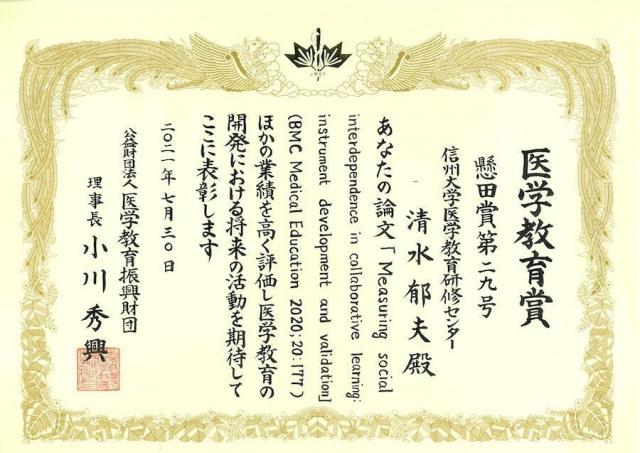 医学教育賞
懸田賞第二九号
信州大学医学教育研修センター
清水郁夫殿
あなたの論文「Measuring social
interdependence in collaborative learning:
instrument development and validation」
(BMC Medical Education 2020;20:177)
ほかの業績を高く評価し医学教育の
開発における将来の活動を期待して
ここに表彰します
二〇二一年七月三〇日
公益財団法人医学教育振興財団
理事長 小川秀興